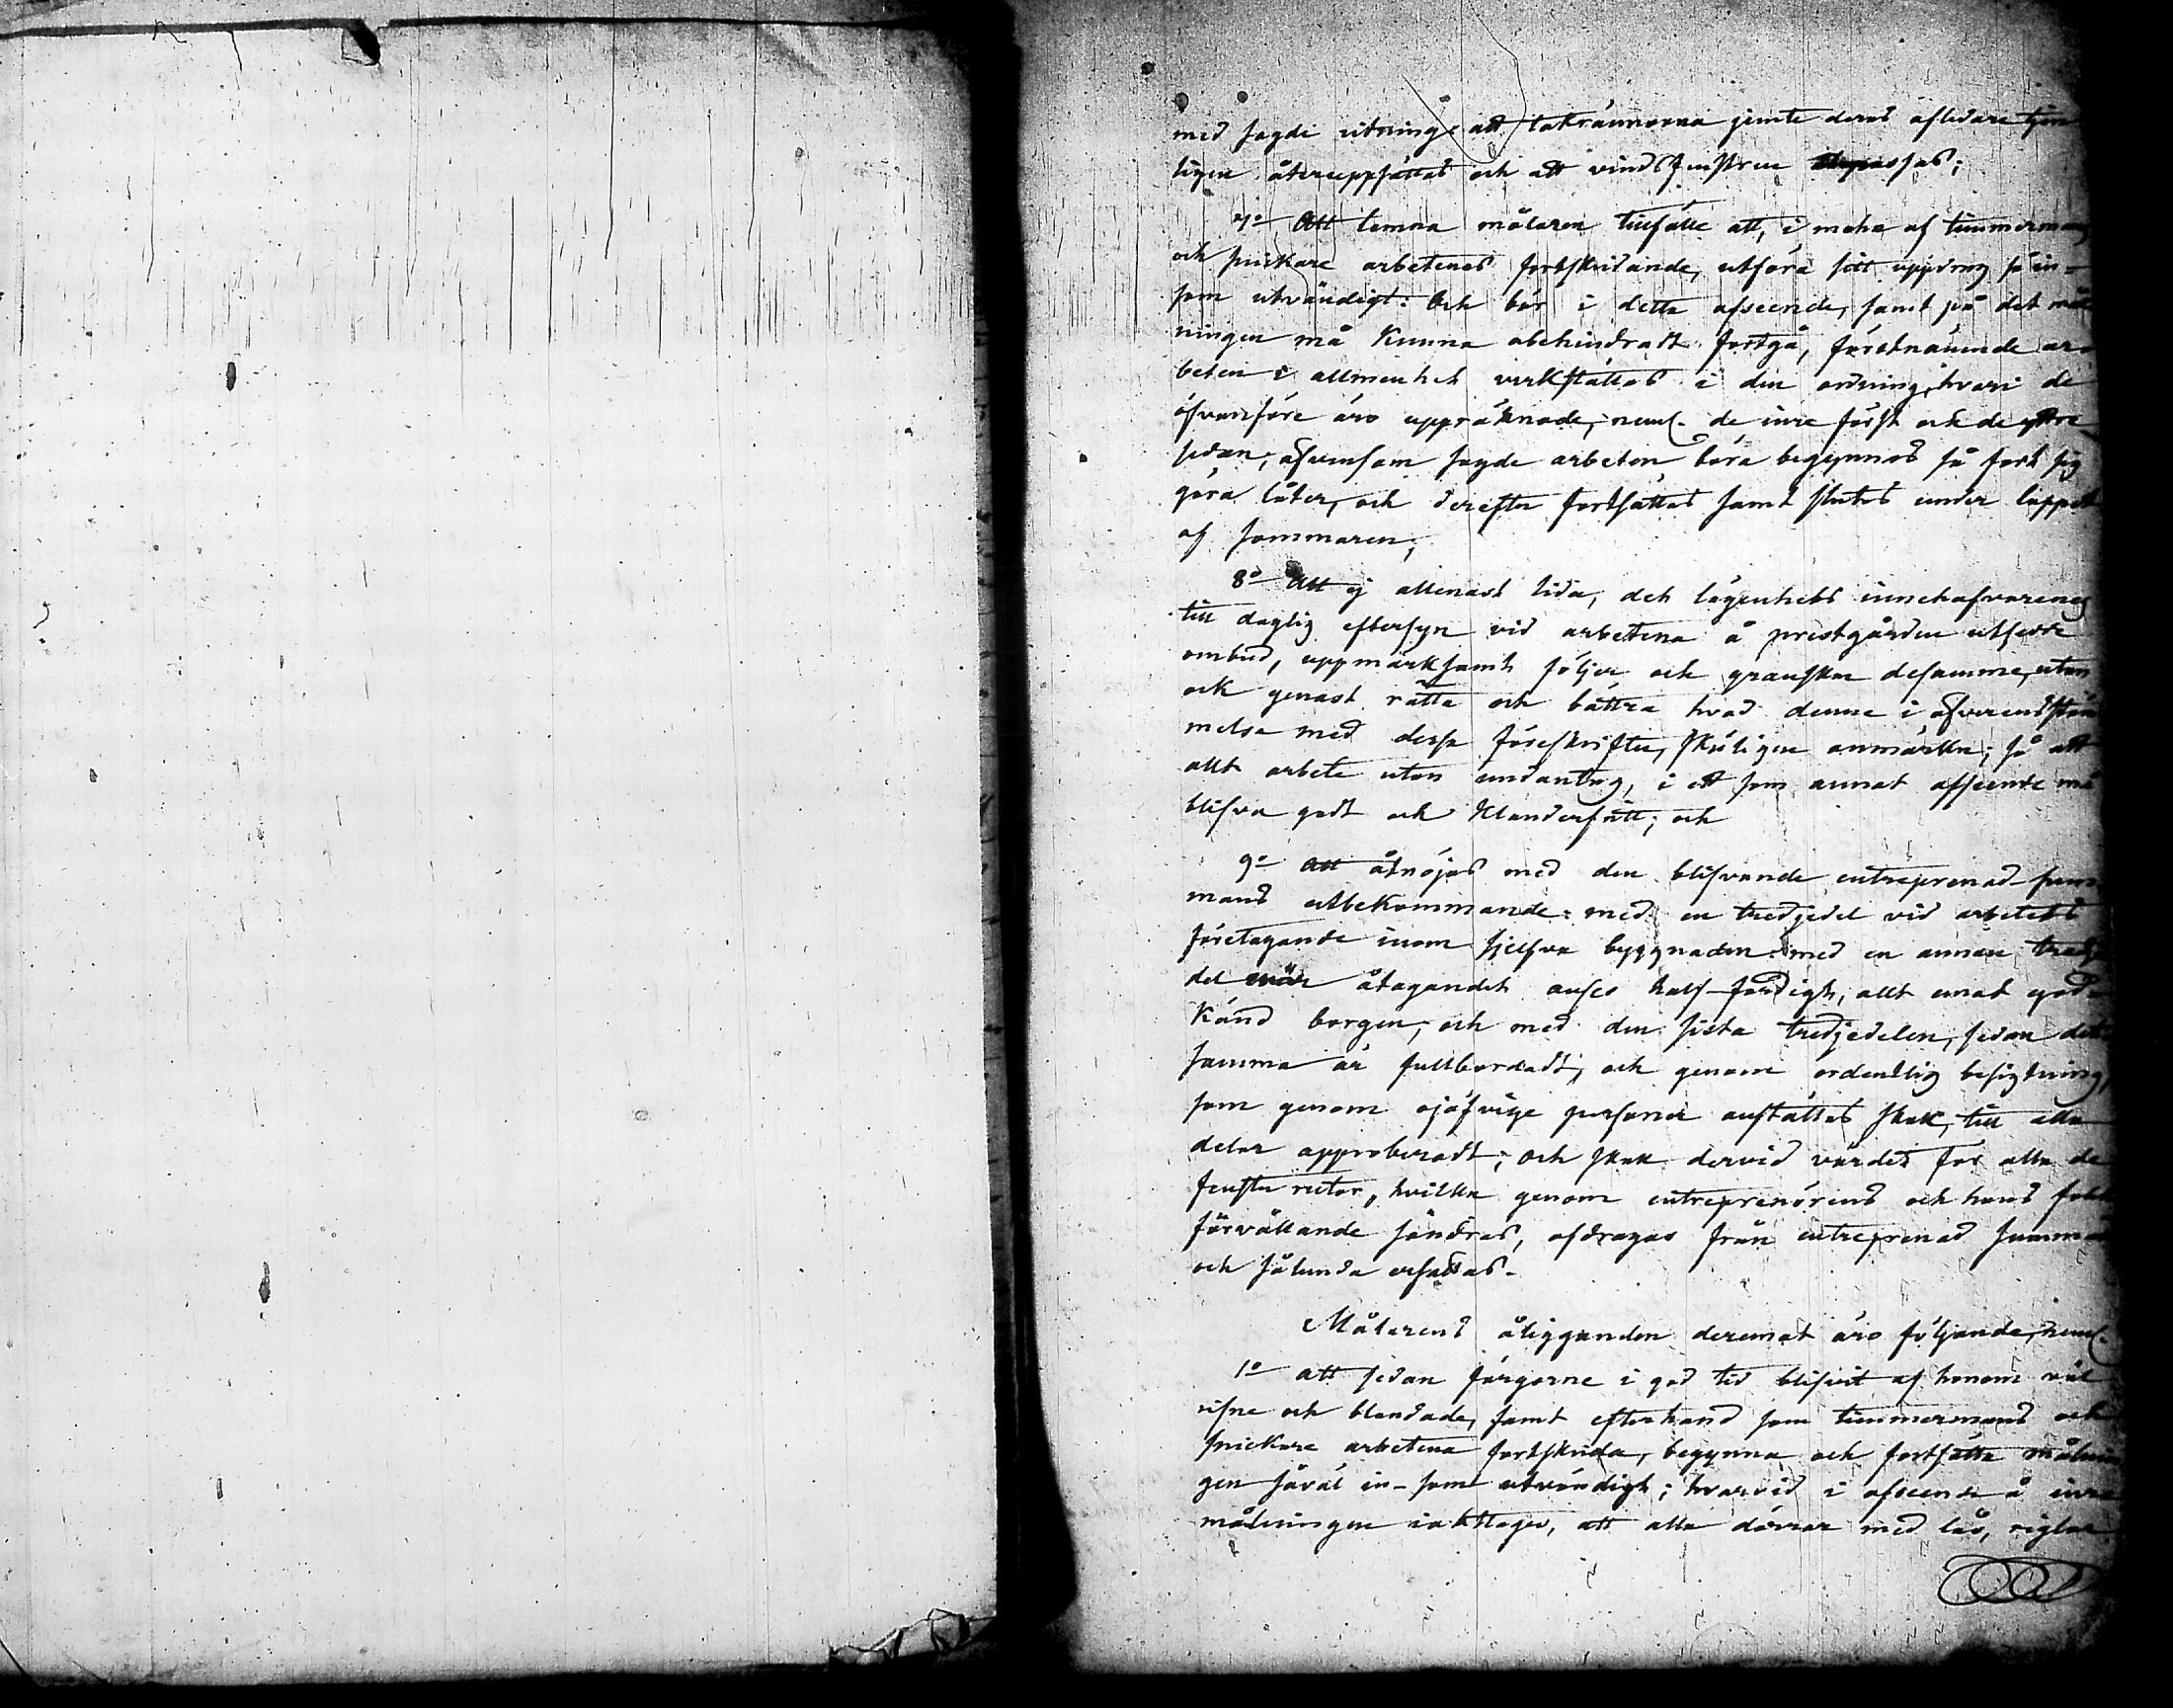 med sagde ritning, att takrännorna jemte deras afledare tjen-
ligen återuppsättas och att vindsfenstren
7o Att lemna målaren tillfälle att, i mohn af timmermans
och snickare arbetenas fortskridande, utföra sitt uppdrag så in-
som utvändigt: Och bör i detta afseende, samt på det mål-
ningen må kunna obehindradt fortgå, förstnämnde ar-
beten i allmenhet verkställas i den ordning, hvari de
ofvanföre äro uppräknade, neml. de inre först och de yttre
sedan; äfvensom sagde arbeten böra begynnas så fort sig
göra låter, och derefter fortsättas samt slutas under loppet
af sommaren;
8o Att ej allenast lida, det lägenhets innehafvarens
till daglig eftersyn vid arbetena å prestgården utsedde
ombud, uppmärksamt följer och granskar desamme, utan
ock genast rätta och bättra hvad denne i öfverensstäm-
melse med dessa föreskrifter, skäligen anmärker; så att
allt arbete utan undantag, i ett som annat afseende må
blifva godt och klanderfritt; och
9o Att åtnöjas med den blifvande entreprenad-sum-
mans utbekommande: med en tredjedel vid arbetets
företagande inom sjelfva byggnaden: med en annan tredje-
del när åtagandet anses half-färdigt, allt emot god-
känd borgen; och med den sista tredjedelen, sedan det-
samma är fullbordadt, och genom ordentlig besigtning,
som genom ojäfvige personer anställas skall, till alla
delar approberadt; och skall dervid värdet for alla de
fenster rutor, hvilka genom entreprenörens och hans folks
förvållande söndras, afdragas från entreprenad summan
och sålunda ersättas.
Målarens åligganden deremot äro följande, neml.
1o att sedan färgorne i god tid blifvit af honom väl
rifne och blandade, samt efterhand som timmermans och
snickare arbetena fortskrida, begynna och fortsätta målnin-
gen såväl in- som utvändigt; hvarvid i afseende å inre
målningen iakttages, att alla dörrar med lås, riglar